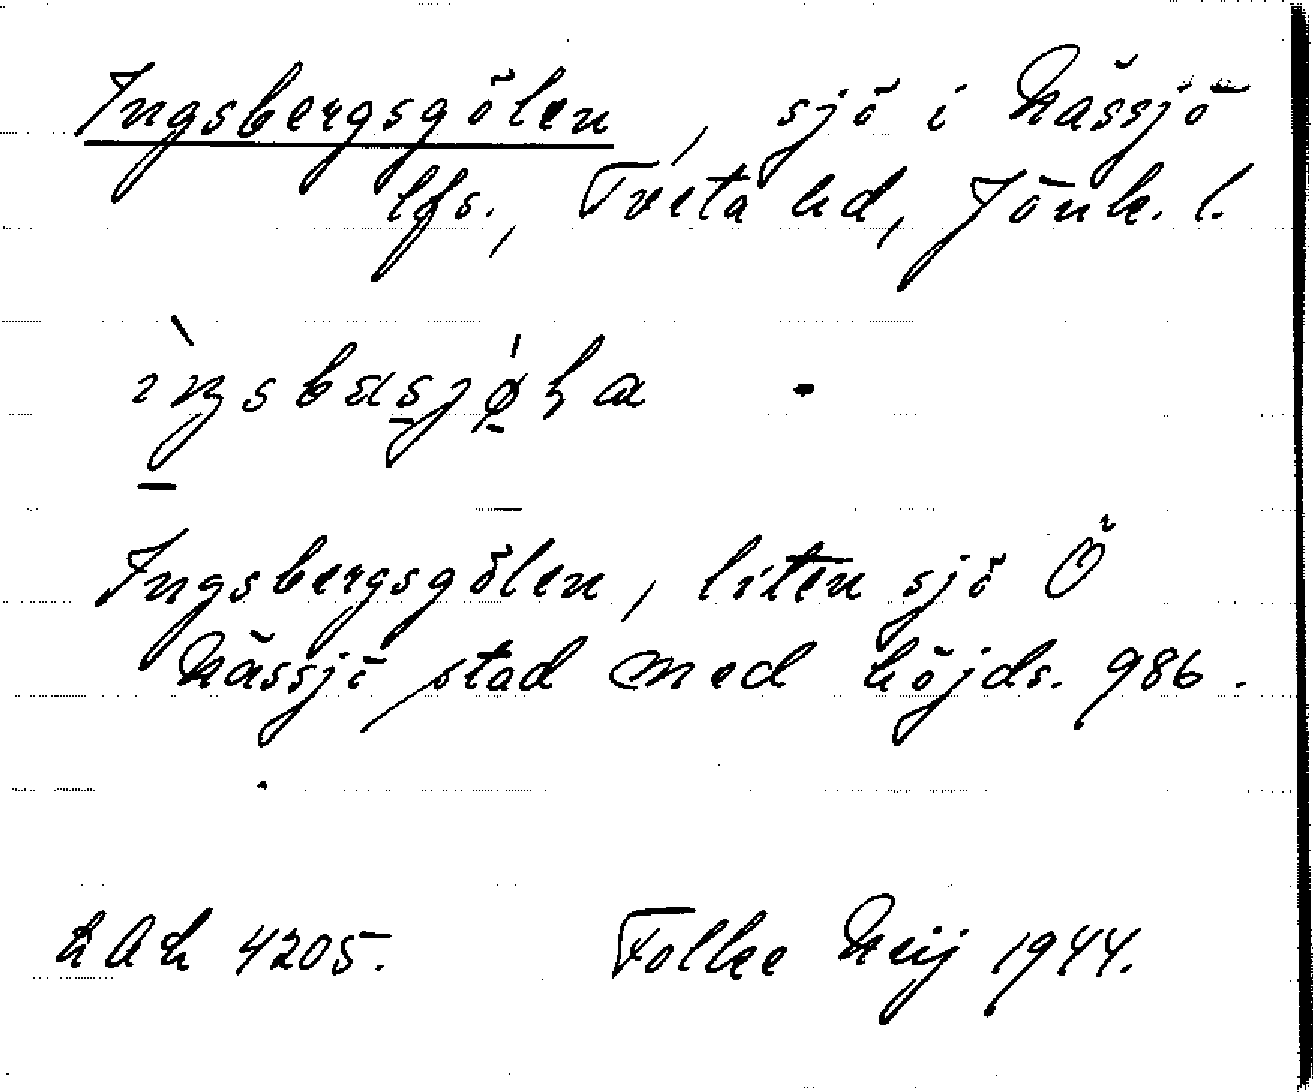 Ingsbergsgölen, sjö i Nässjö
lfs., Tveta hd, Jönk. l.
Ingsbergsgölen, liten sjö Ö
Nässjö stad med höjds. 986.
4205. Folke Neij 1944.